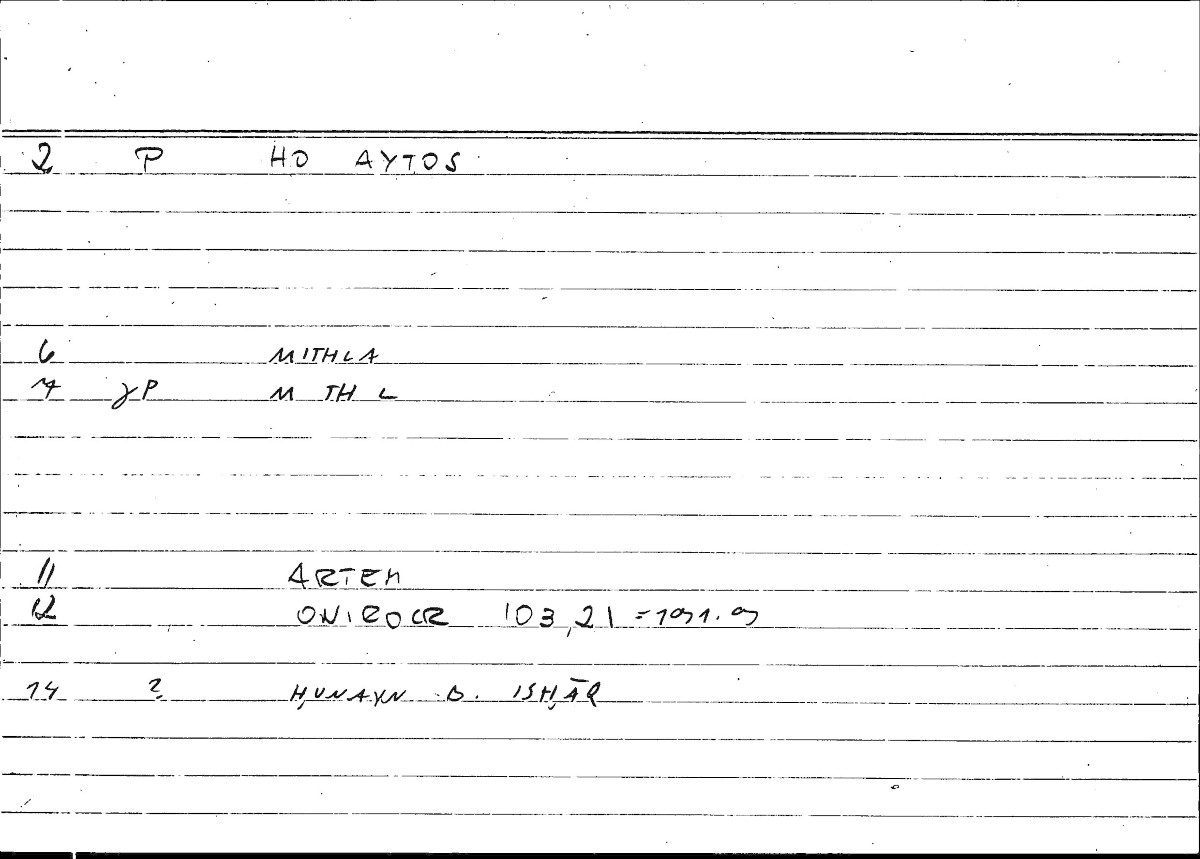 2 P HO AYTOS
6 MITHLA
7 γP M TH L
11 ARTEM
12 ONIROCR 103,21 = 191.9
14 ? ḤUNAYN B. ISḤĀQ